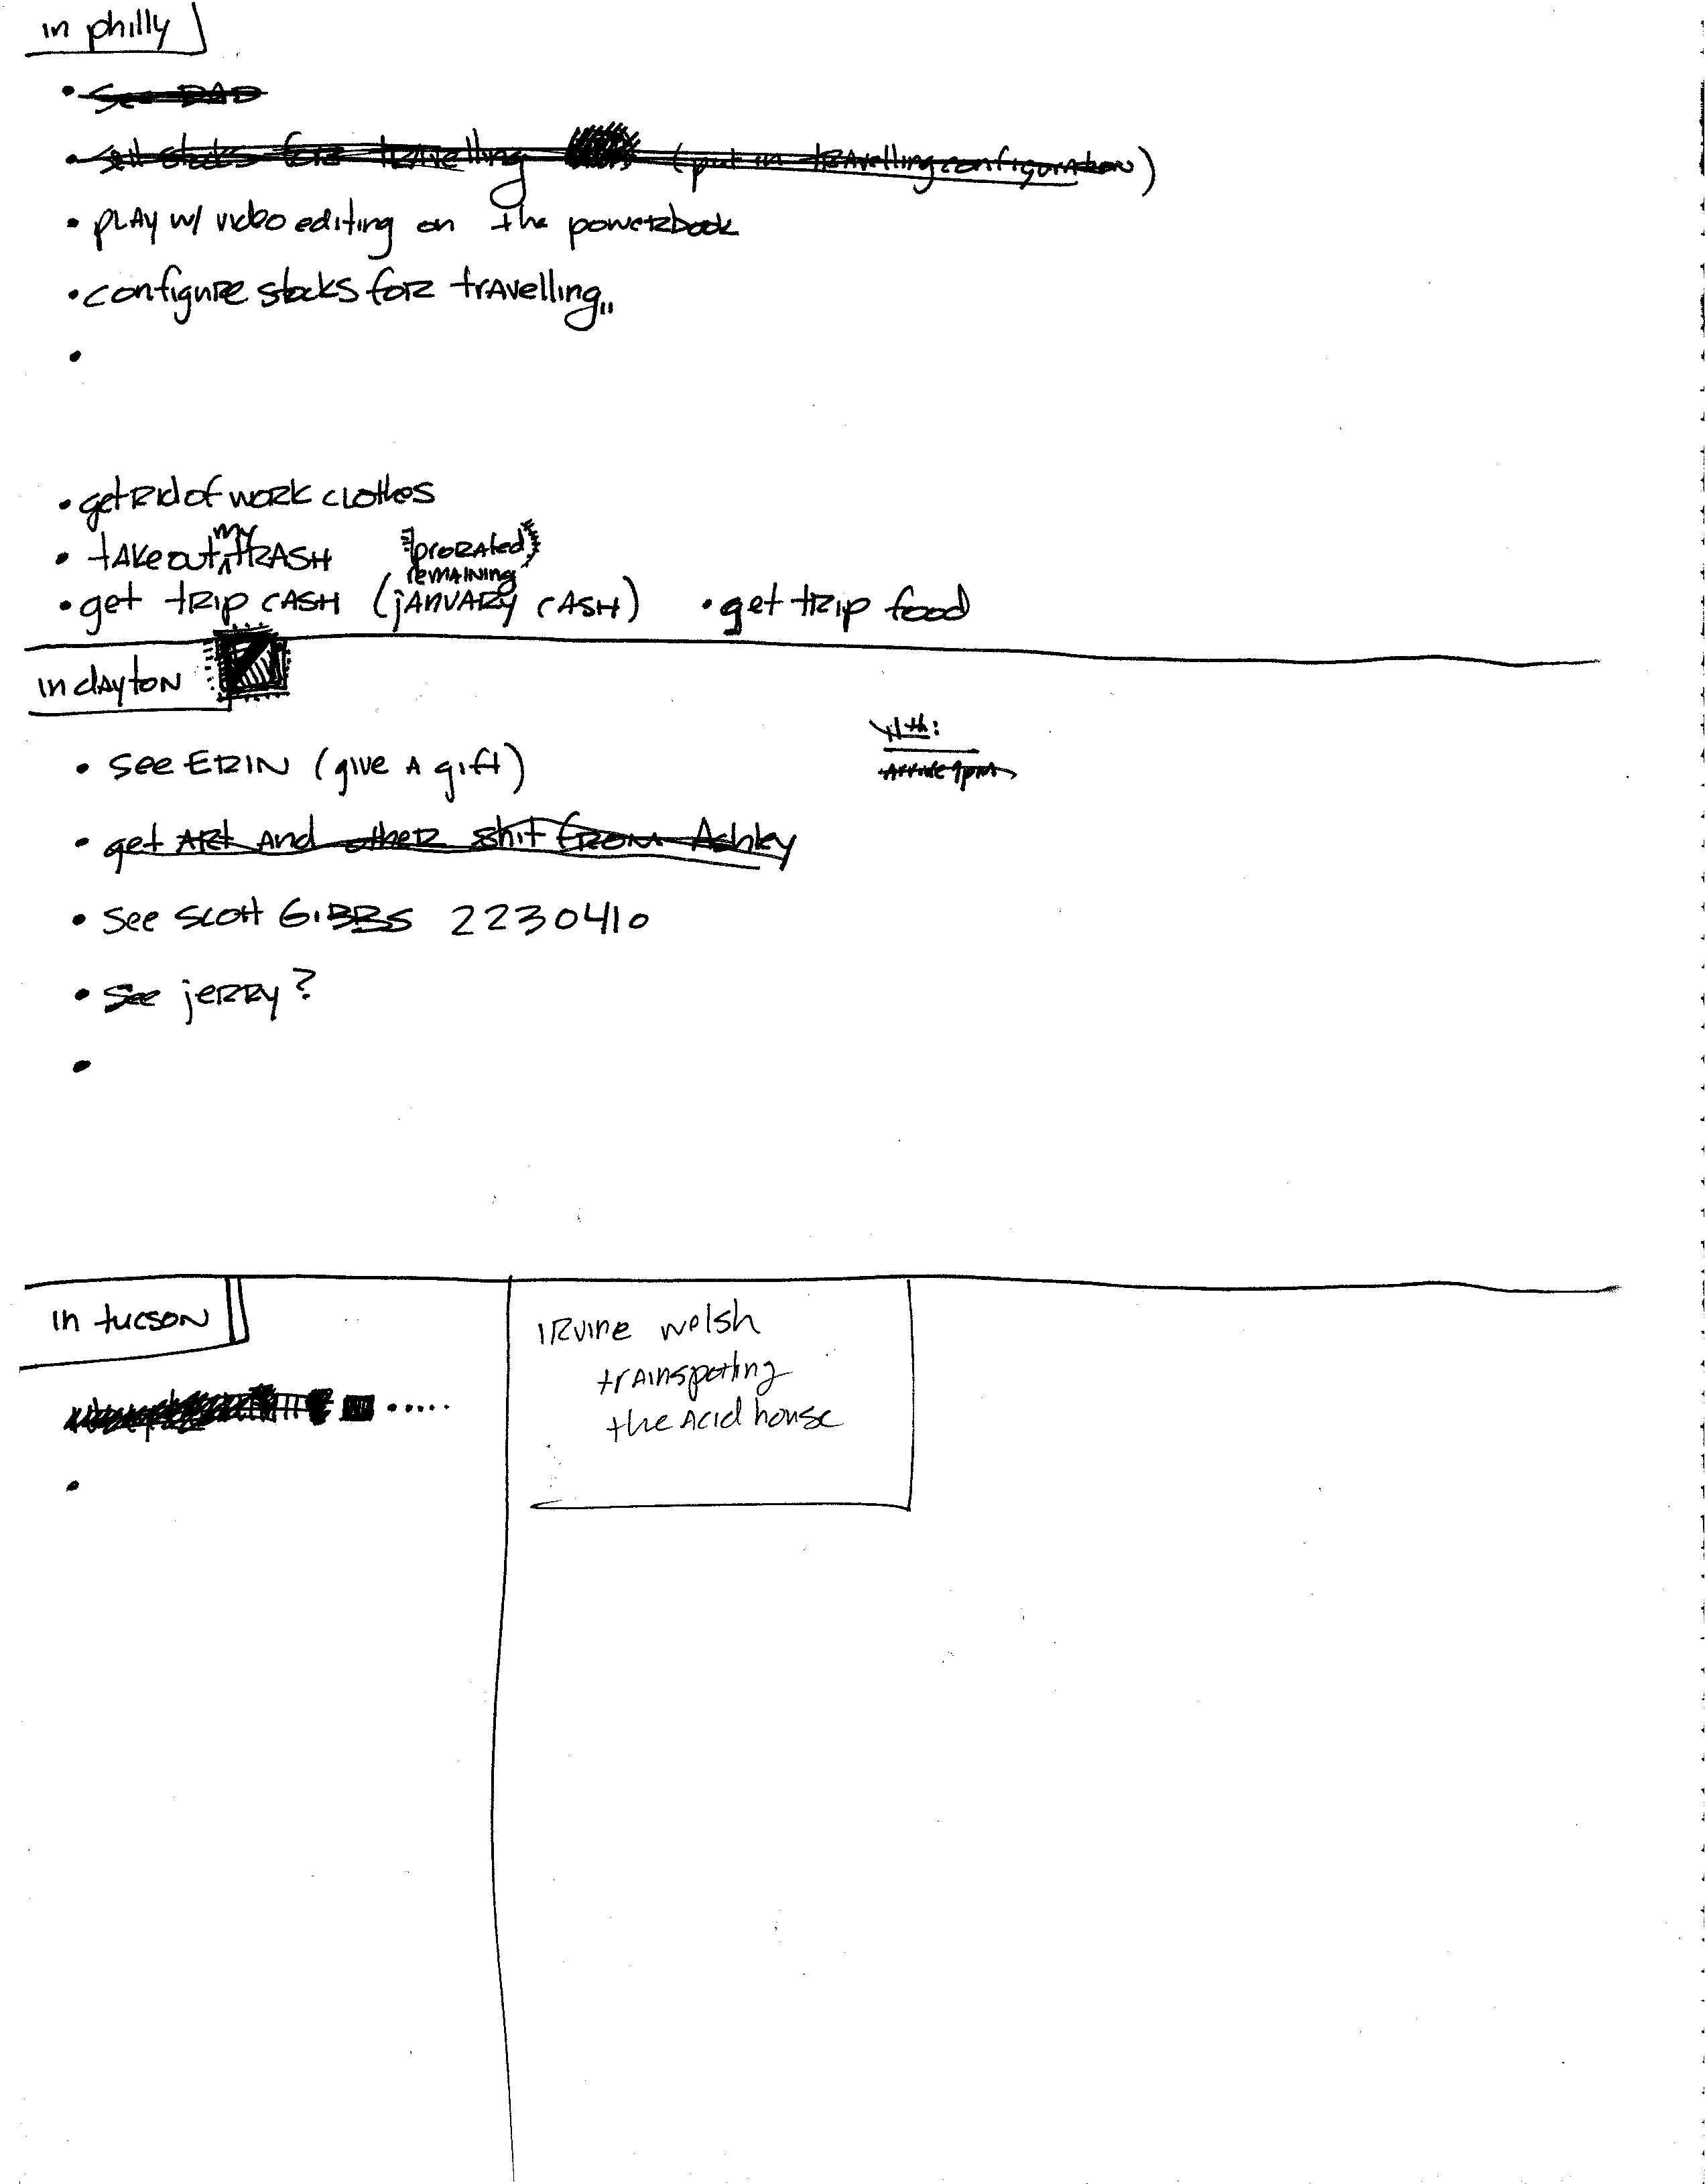 in philly
• See DAD
• sell stocks for travelling (put in travelling configuration)
• play w/ video editing on the powerbook
• configure stocks for travelling..
•
• get rid of work clothes
• take out my trash
prorated
remaining
• get trip cash (january cash) • get trip food
in dayton
11th:
arrive 9pm
• see ERIN (give a gift)
• get art and other shit from Ashley
• see Scott GIBBS 2230410
• see jerry?
•
in tucson
•
irvine welsh
trainspotting
the acid house